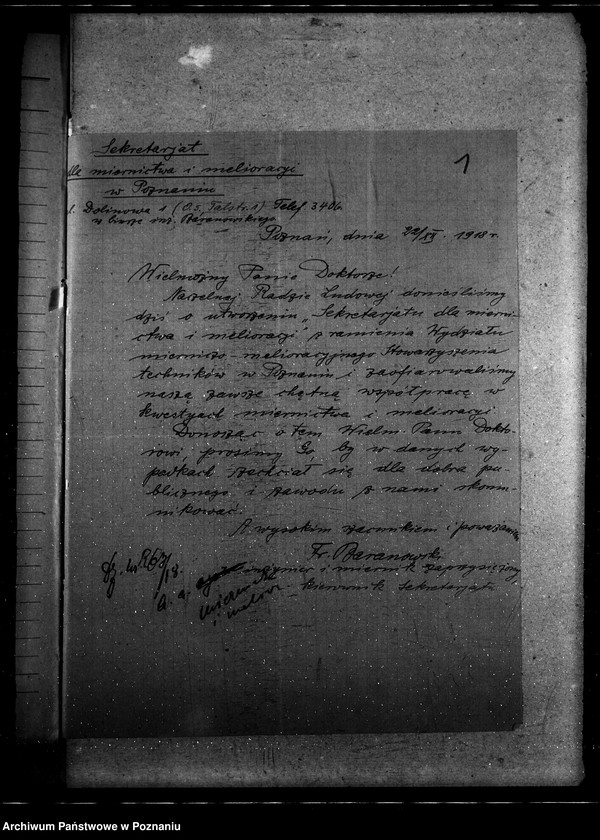 Sekretarjat
dla miernictwa i melioracyi
w Poznaniu
ul. Dolinowa 1 (O.S. ) Telef 3406
w biurze inż. Baranowskiego
1
Poznań, dnia 22/XII. 1918 r.
Wielmożny Panie Doktorze!
Naczelnej Radzie Ludowej donieśliśmy
dziś o utworzeniu „Sekretarjatu dla mierni-
ctwa i melioracyi" z ramienia Wydziału
mierniczo-melioracyjnego Stowarzyszenia
techników w Poznaniu i zaofiarowaliśmy
naszą zawsze chętną współpracę w
kwestyach miernictwa i melioracyi.
Donosząc o tem Wielm. Panu Dokto-
rowi, prosimy Go, by w danych wy-
padkach zechciał się dla dobra pu-
blicznego i zawodu z nami skomu-
nikować.
Z wysokim szacunkiem i poważaniem
Fr. Baranowski
inżynier i miernik zaprzysiężony
kierownik Sekretarjatu
/18.
a. a.
i
Archiwum Państwowe w Poznaniu